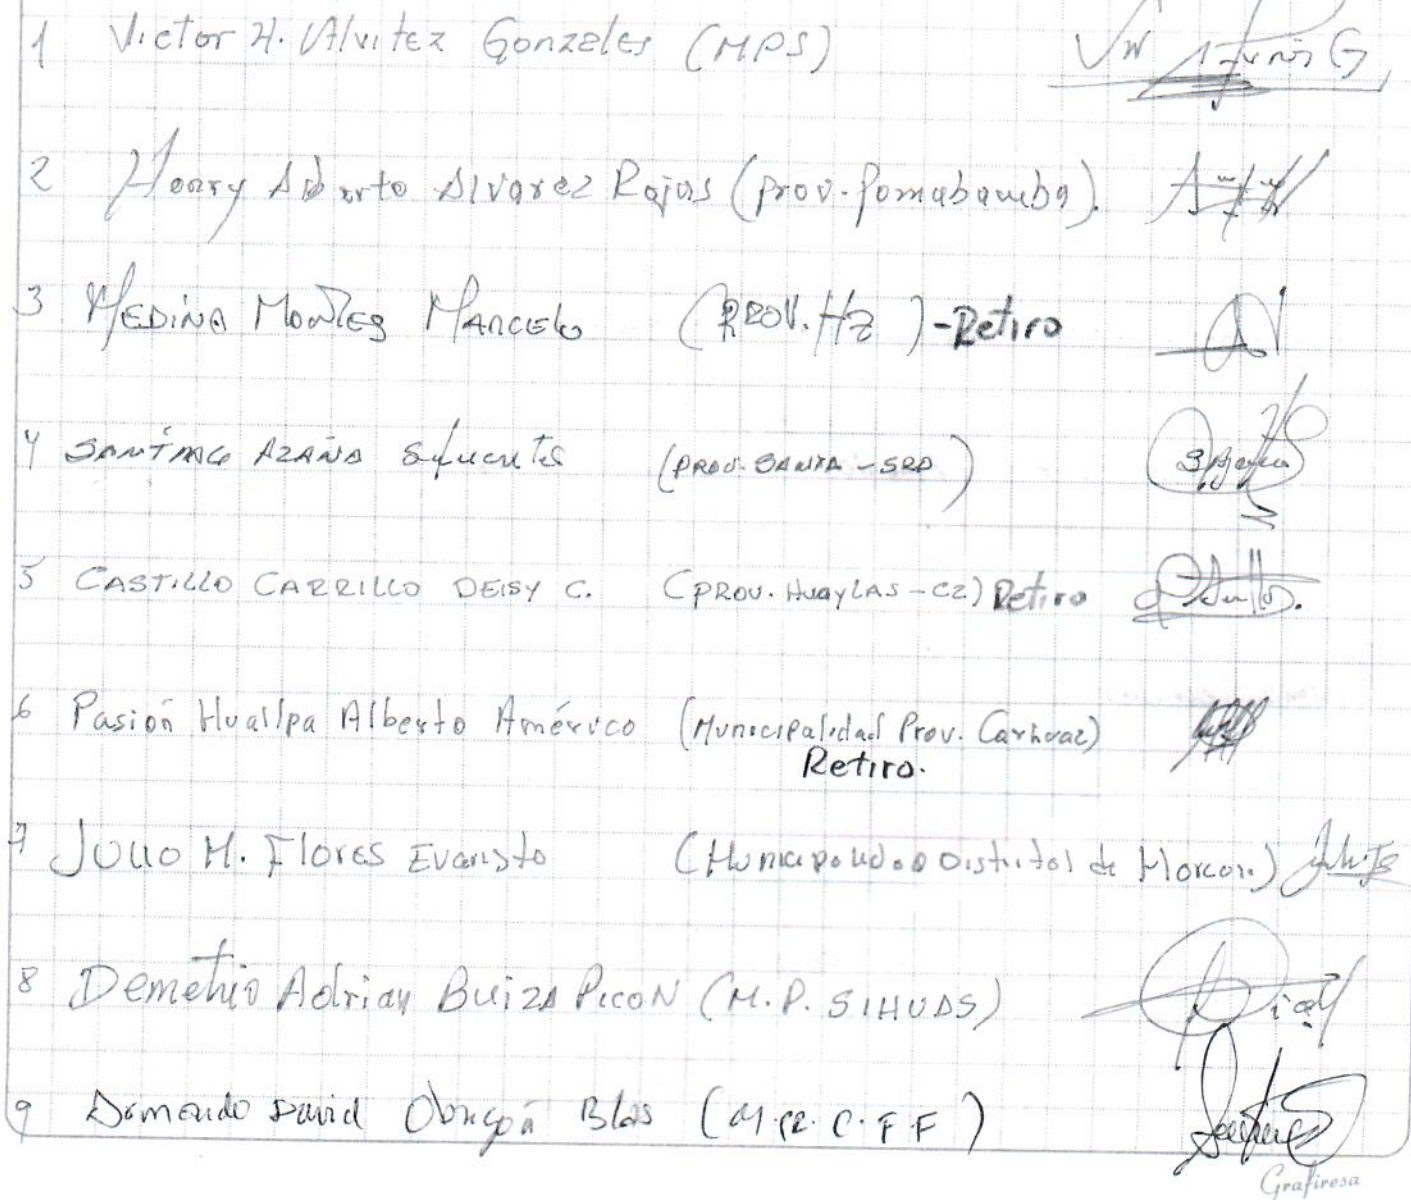 1 Victor H. Alvitez Gonzeles (MPS)
2 Henry Alberto Alvarez Rojas (prov. Pomabamba).
3 MEDINA MONTES MARCELO (PROV. HZ) - Retiro
4 SANTIAGO AZAÑA Sifuentes (PROV. SANTA - SRD)
5 CASTILLO CARRILLO DEISY C. (PROV. HUAYLAS - CZ) Retiro
6 Pasión Huallpa Alberto Américo (Municipalidad Prov. Carhuaz)
Retiro.
7 JULIO M. Flores Evaristo (Municipalidad Distrital de
8 Demetrio Adrian BUIZA PICON (M.P. SIHUAS)
9 Armando David Obregón Blas (M.PR. C.F.F)
Grafiresa